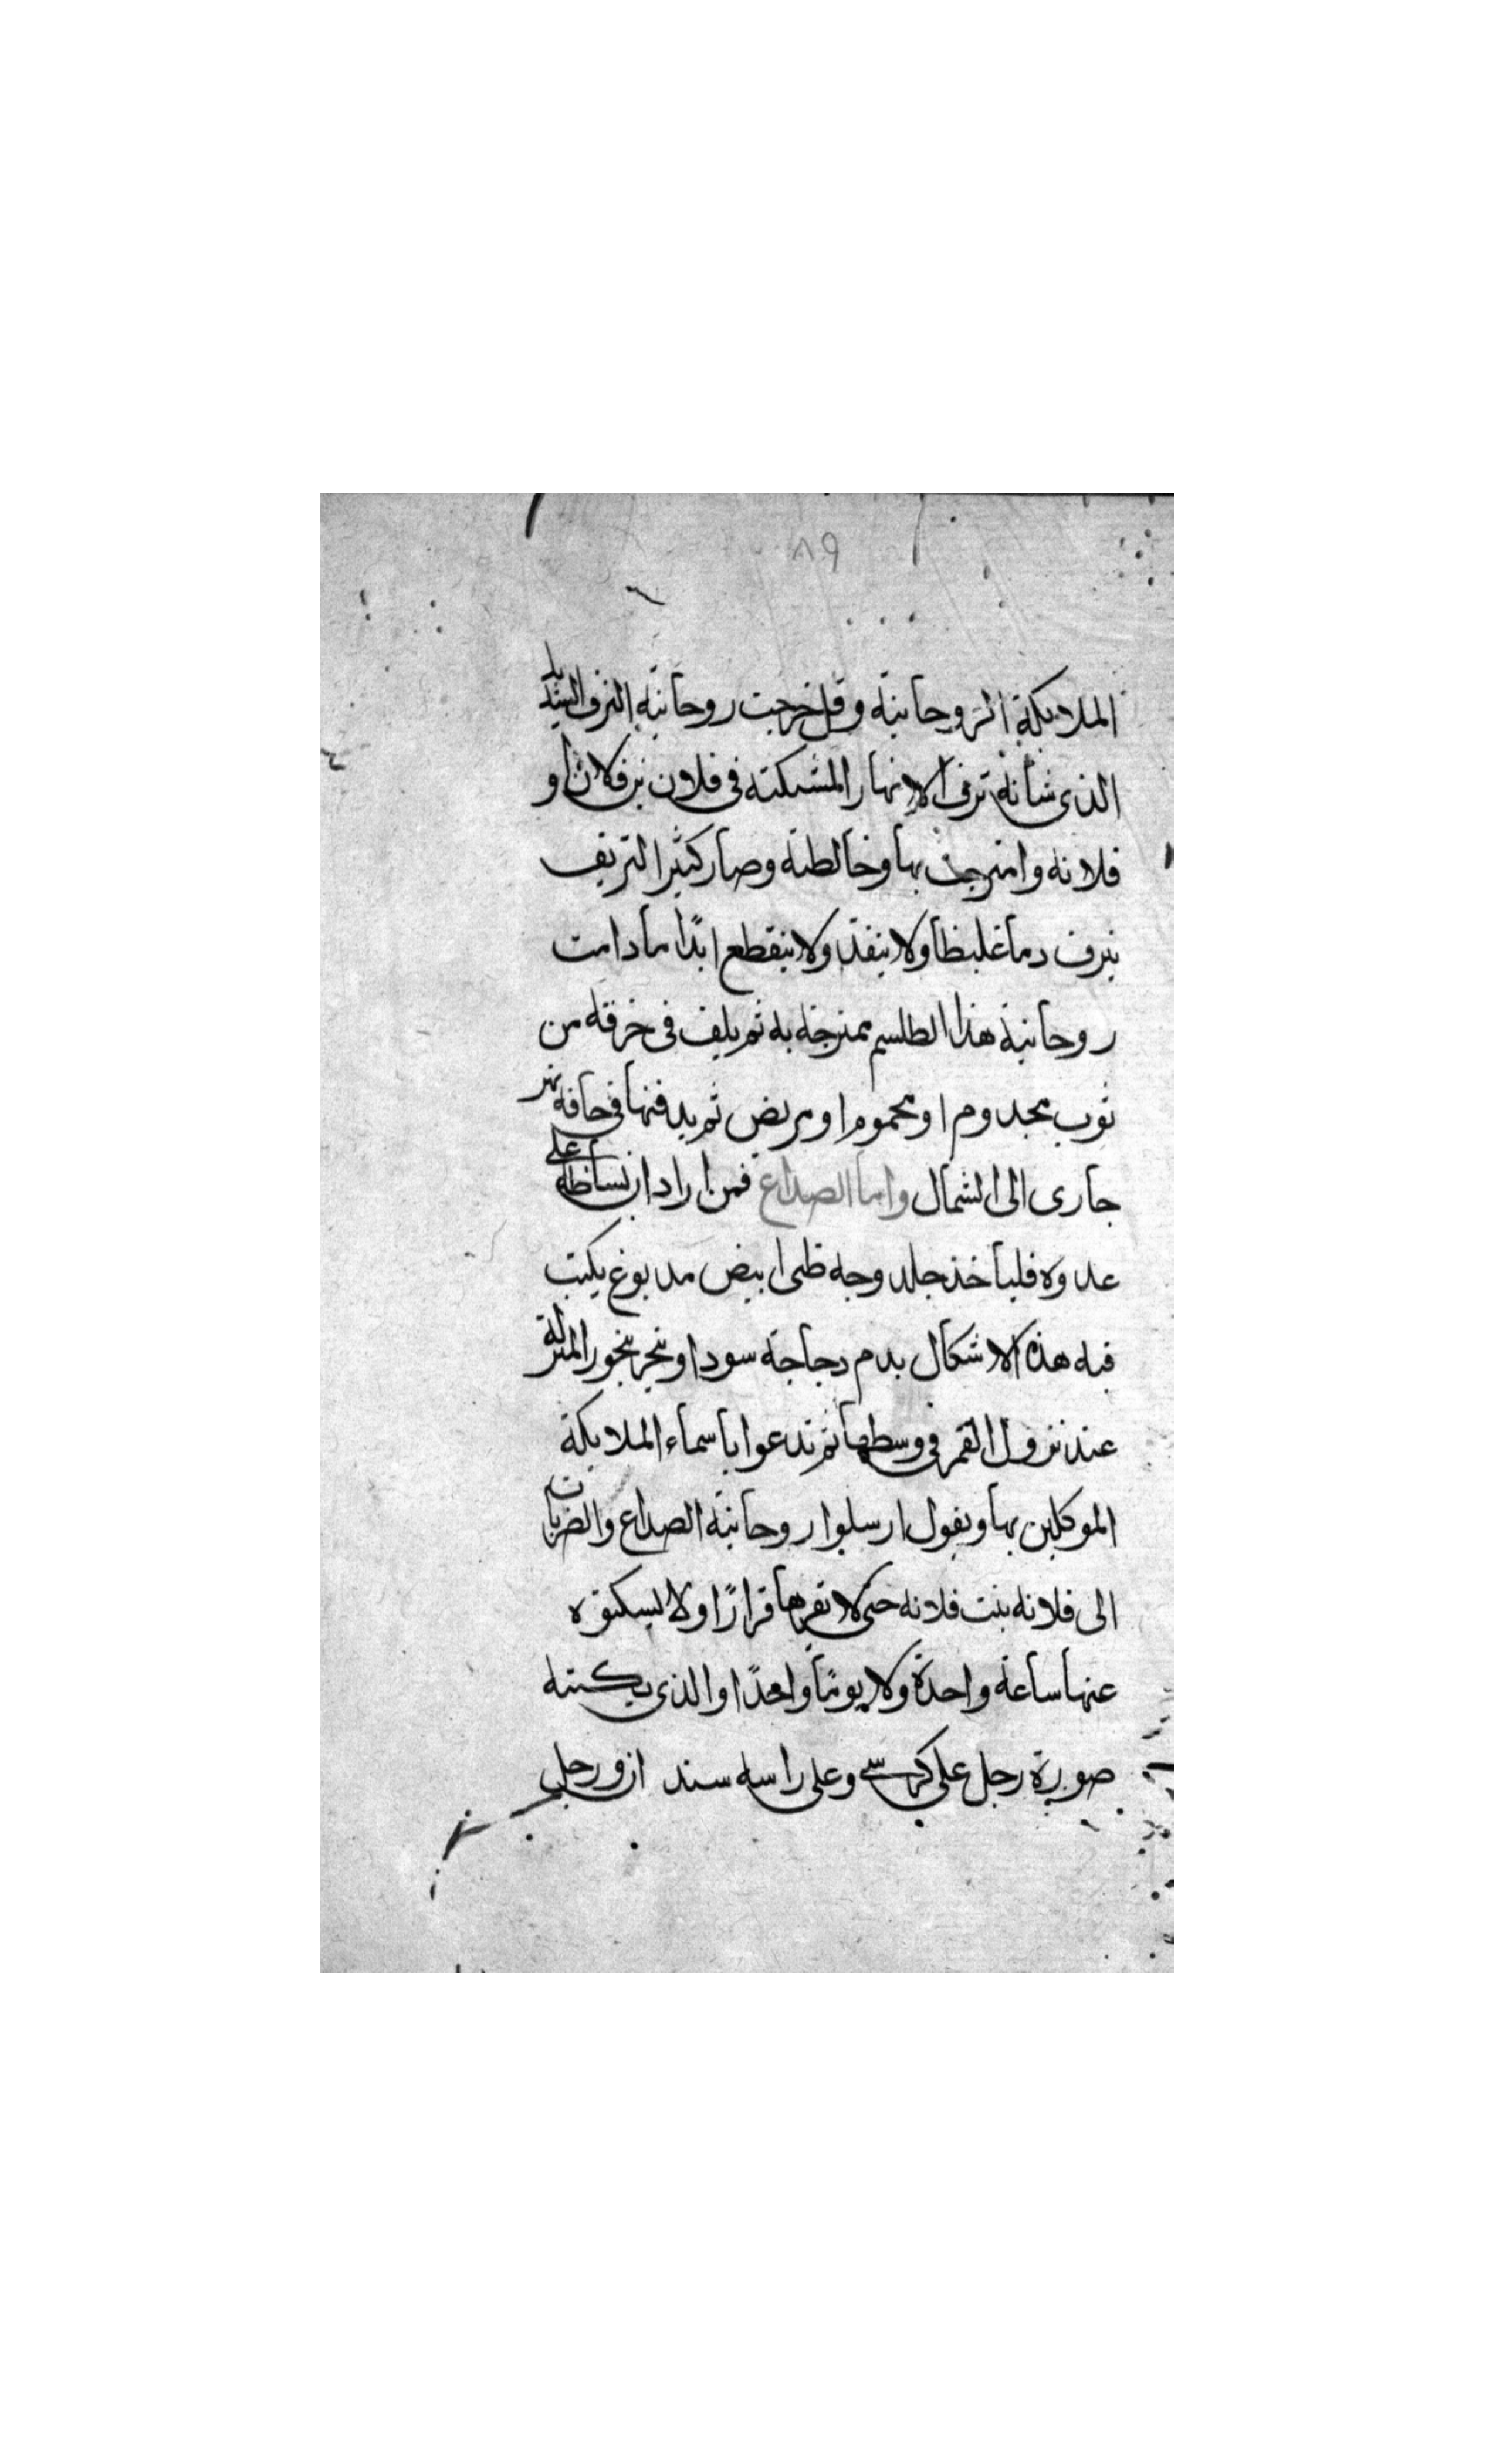 ٨٩
الملايكة الروحانية وقل خرجت روحانية النزف الشديد
الذى شانه نزف الانهار المشبكته فى فلان بن فلان او
فلانه وامتزجت بها وخالطته وصار كثير النزيف
ينزف دما غليظا ولا ينفذ ولا ينقطع ابدًا ما دامت
روحانية هذا الطلسم ممتزجه به ثم يلف فى خرقه من
ثوب مجدوم او محموم او مريض ثم يدفنها فى حافة نهر
جارى الى الشمال واما الصداع فمن اراد ان على
عدوه فلياخذ جلد وجه ظبى ابيض مدبوغ يكتب
فيه هذه الاشكال بدم دجاجة سودا ويبخر ببخور المنزلة
عند نزول القمر فى وسطها ثم تدعوا باسماء الملايكة
الموكلين بها ويقول ارسلوا روحانية الصداع والضربات
الى فلانه بنت فلانه حتى لا تقر لها قرارًا ولا ليسكن
عنها ساعة واحدة ولا يومًا واحدًا والذى يكتبه
صورة رجل على كرسى وعلى راسه ورجل